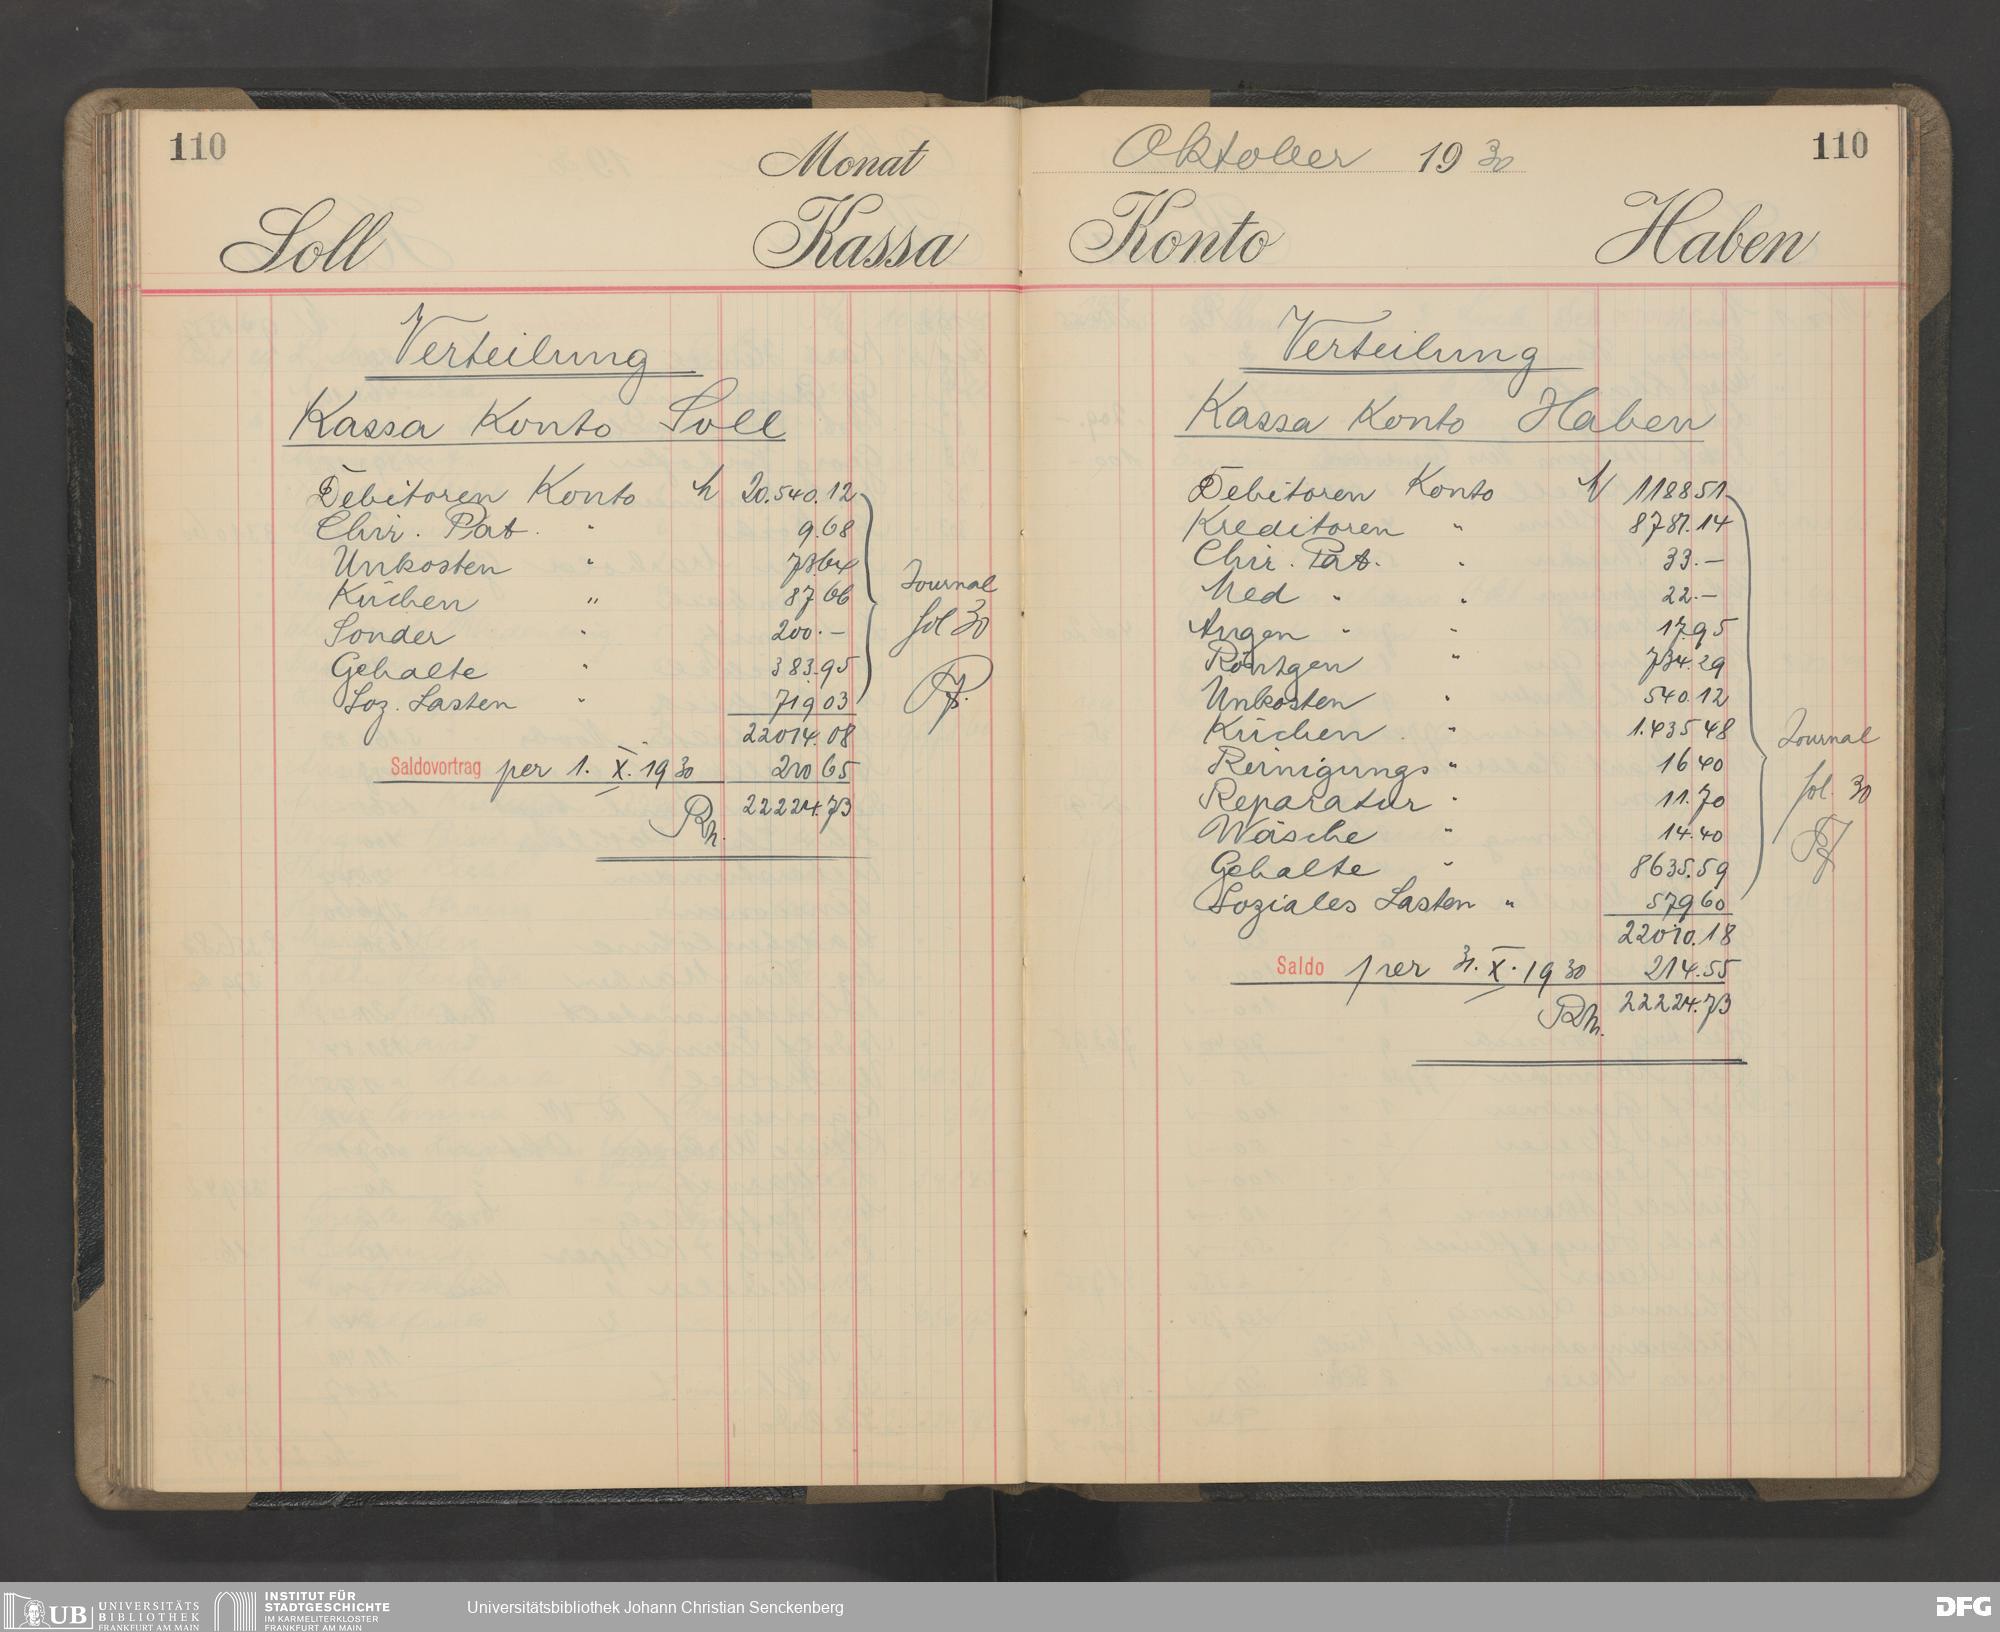 110
Monat
Soll Kassa
Verteilung
Kassa Konto Soll
Debitoren Konto M 20.540.12
Chir. Pat. " 9.68
Unkosten " 73.64
Küchen " 87.66
Sonder " 200.-
Gehalte " 383.95
Soz. Lasten " 719 03
22014.08
Saldovortrag per 1. X. 1930 210 65
Rm. 22224.73
Journal
fol 30
Oktober 1930
110
Konto Haben
Verteilung
Kassa Konto Haben
Debitoren Konto M 1188 51
Kreditoren " 8781.14
Chir. Pat. " 33.-
Med " " 22.-
Augen " " 17.95
Röntgen " 734.29
Unkosten " 540.12
Küchen " 1.435 48
Reinigungs " 16 40
Reparatur " 11.70
Wäsche " 14.40
Gehalte " 8635.59
Soziales Lasten " 579 60
22010.18
Saldo per 31. X. 1930 214.55
Rm. 22224.73
Journal
fol. 30
UB UNIVERSITÄTS
BIBLIOTHEK
FRANKFURT AM MAIN
INSTITUT FÜR
STADTGESCHICHTE
IM KARMELITERKLOSTER
FRANKFURT AM MAIN
Universitätsbibliothek Johann Christian Senckenberg
DFG